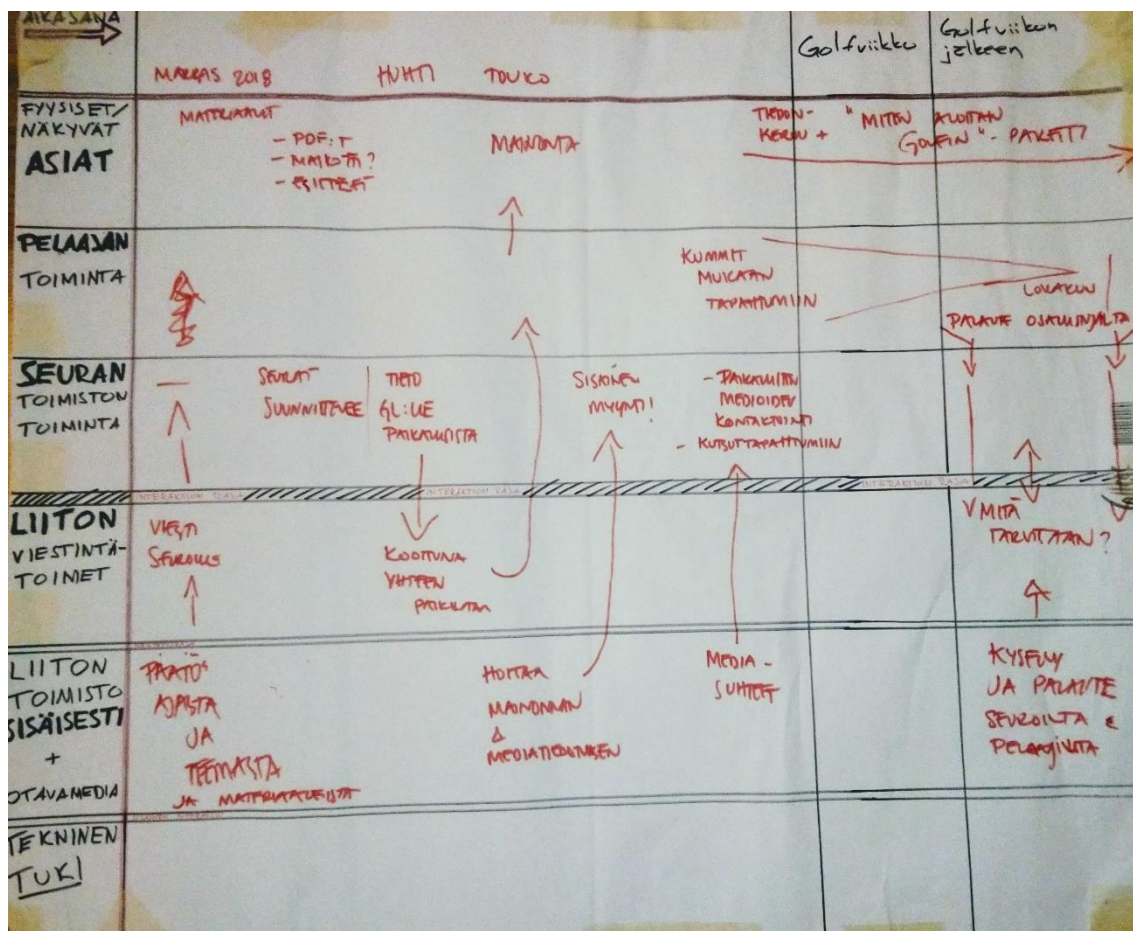 AIKAJANA
Golfviikko
Golfviikon
jälkeen
MARRAS 2018
HUHTI
TOUKO
FYYSISET/
NÄKYVÄT
ASIAT
MATERIAALIT
- PDF:T
- MAINOTA?
- ESITTEET
MAINONTA
TIEDON-
KERUU +
"MITEN ALOITAN
GOLFIN"- PAKETTI
PELAAJAN
TOIMINTA
KUMMIT
MUKAAN
TAPAHTUMIIN
LOKAKUU
PALAUTE OSALLISTUJILTA
SEURAN
TOIMISTON
TOIMINTA
SEURAT
SUUNNITTELEE
TIETO
GL:LLE
PAIKALLISISTA
SISÄINEN
MYYNTI!
- PAIKALLISTEN
MEDIOIDEN
KONTAKTOINTI
- KUTSUT TAPAHTUMIIN
INTERAKTION RAJA
INTERAKTION RAJA
INTERAKTION RAJA
LIITON
VIESTINTÄ-
TOIMET
VIESTI
SEUROILLE
KOOTTUNA
YHTEEN
PAIKKAAN
MITÄ
TARVITAAN?
LIITON
TOIMISTO
SISÄISESTI
+
OTAVAMEDIA
PÄÄTÖS
AJASTA
JA
TEEMASTA
JA MATERIAALEISTA
HOITAA
MAINONNAN
&
MEDIATIEDOTUKSEN
MEDIA-
SUHTEET
KYSELY
JA PALAUTE
SEUROILTA &
PELAAJILTA
TEKNINEN
TUKI